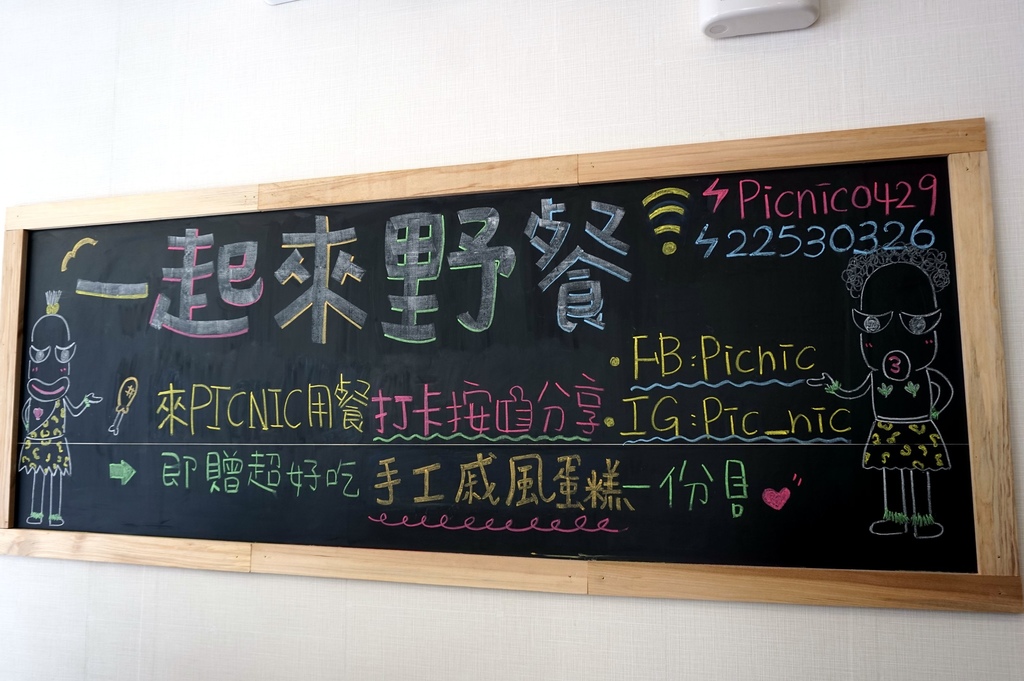 一起來野餐
Picnic0429
22530326
來PICNIC用餐打卡按讚分享
FB:Picnic
IG:Pic_nic
即贈超好吃 手工戚風蛋糕一份
3